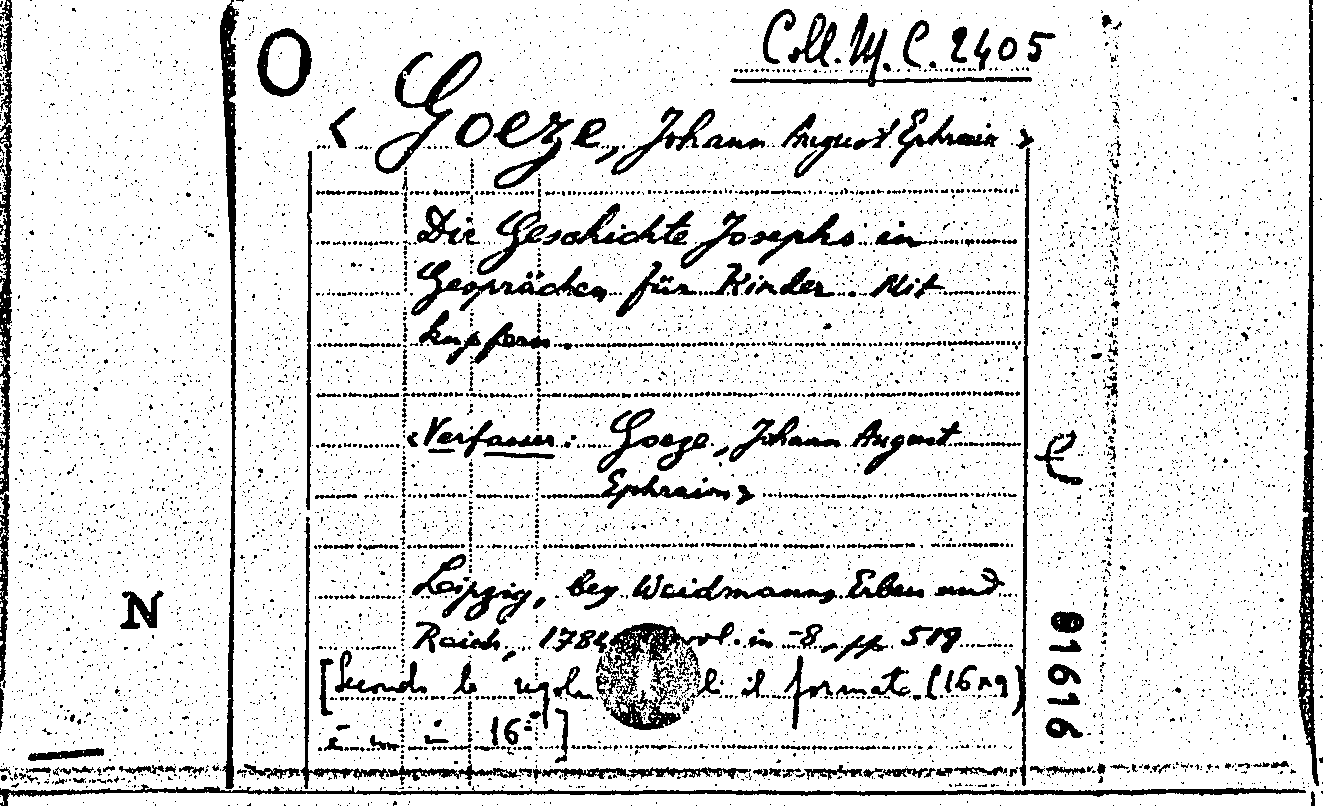 O
Coll. M. C. 2405
< Goeze, Johann August Ephraim >
Die Geschichte Josephs in
Gesprächen für Kinder. Mit
Kupfern.
<Verfasser: Goeze, Johann August
Ephraim>
e
N
Leipzig, bey Weidmanns Erben und
Reich, 1784 vol. in -8, pp 519
[Secondo le il formato (16
è un in 16°]
01616